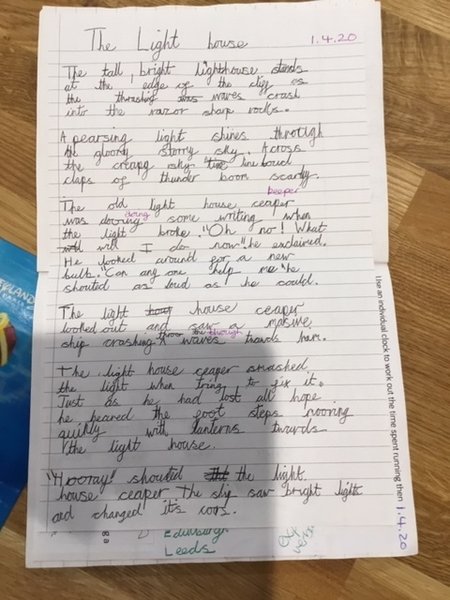 The Light house
1.4.20
The tall, bright lighthouse stands
at the edge of the clif as
the thrashing was waves crash
into the razor sharp rocks.
A pearsing light shines through
the gloomy storry sky. Across
the creapy sky loud
claps of thunder boom scarly.
keeper
The old light house ceaper
doing
was dooing some writing when
the light broke. "Oh no! What
will I do now" he exclaired.
He looked around for a new
bulb. "Can any one help me" he
shouted as loud as he could.
The light house ceaper
looked out and saw a masive
through
ship crashing waves tawds him.
The light house ceaper smashed
the light when tring to fix it.
Just as he had lost all hope
he heared the foot steps mooving
quickly with lanterns tawrds
the light house.
"Hooray!" shouted the light
house ceaper. The sip saw bright light
and changed it's cors.
Use an individual clock to work out the time spent running then
1.4.20
Edinburgh
Leeds